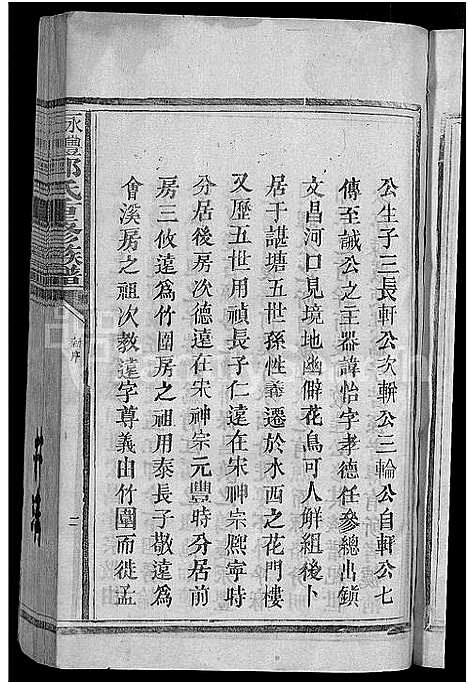 公生子三長軒公次軿公三輪公自軒公七
傳至誠公之主器諱怡字孝德任參總出鎮
文昌河口見境地幽僻花鳥可人解組後卜
居于諶塘五世孫性義遷於水西之花門樓
又歷五世用禎長子仁遠在宋神宗熙寧時
分居後房次德遠在宋神宗元豐時分居前
房三攸遠爲竹園房之祖用泰長子敬遠爲
會溪房之祖次教遠字尊義由竹園而徙孟
永豐郭氏重修族譜
序